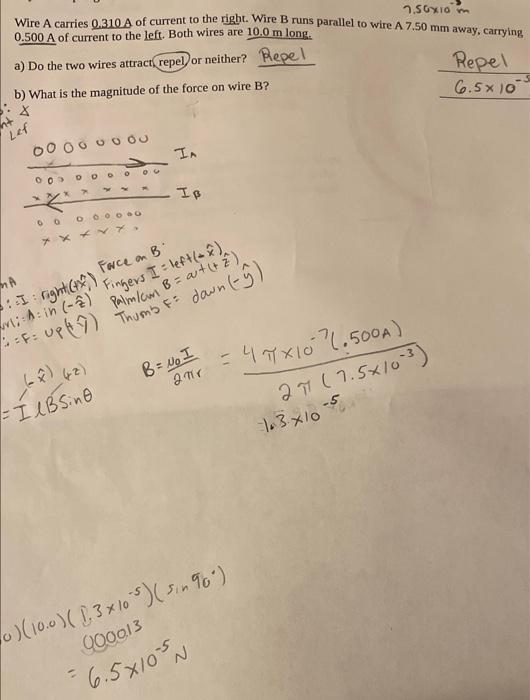 7.50x10⁻³m
Wire A carries 0.310 A of current to the right. Wire B runs parallel to wire A 7.50 mm away, carrying
0.500 A of current to the left. Both wires are 10.0 m long.
a) Do the two wires attract, repel, or neither? Repel
Repel
b) What is the magnitude of the force on wire B?
6.5 x 10⁻⁵
Lef
o o o o o o o o
I_A
o o o o o o o o
x x x x x x x
I_B
o o o o o o o o
x x x x x x
Force on B:
I: right(+x̂) Fingers I = left(-x̂)
A: in (-ẑ) Palm/curl B = out(+ẑ)
F= up(+ŷ) Thumb F= down(-ŷ)
(-x̂) (+z)
= I l B Sinθ
B = μ₀I / 2πr = 4π×10⁻⁷(.500A) / 2π(7.5x10⁻³)
1.3 x10⁻⁵
0)(10.0)(1.3x10⁻⁵)(sin 90°)
000013
= 6.5x10⁻⁵ N